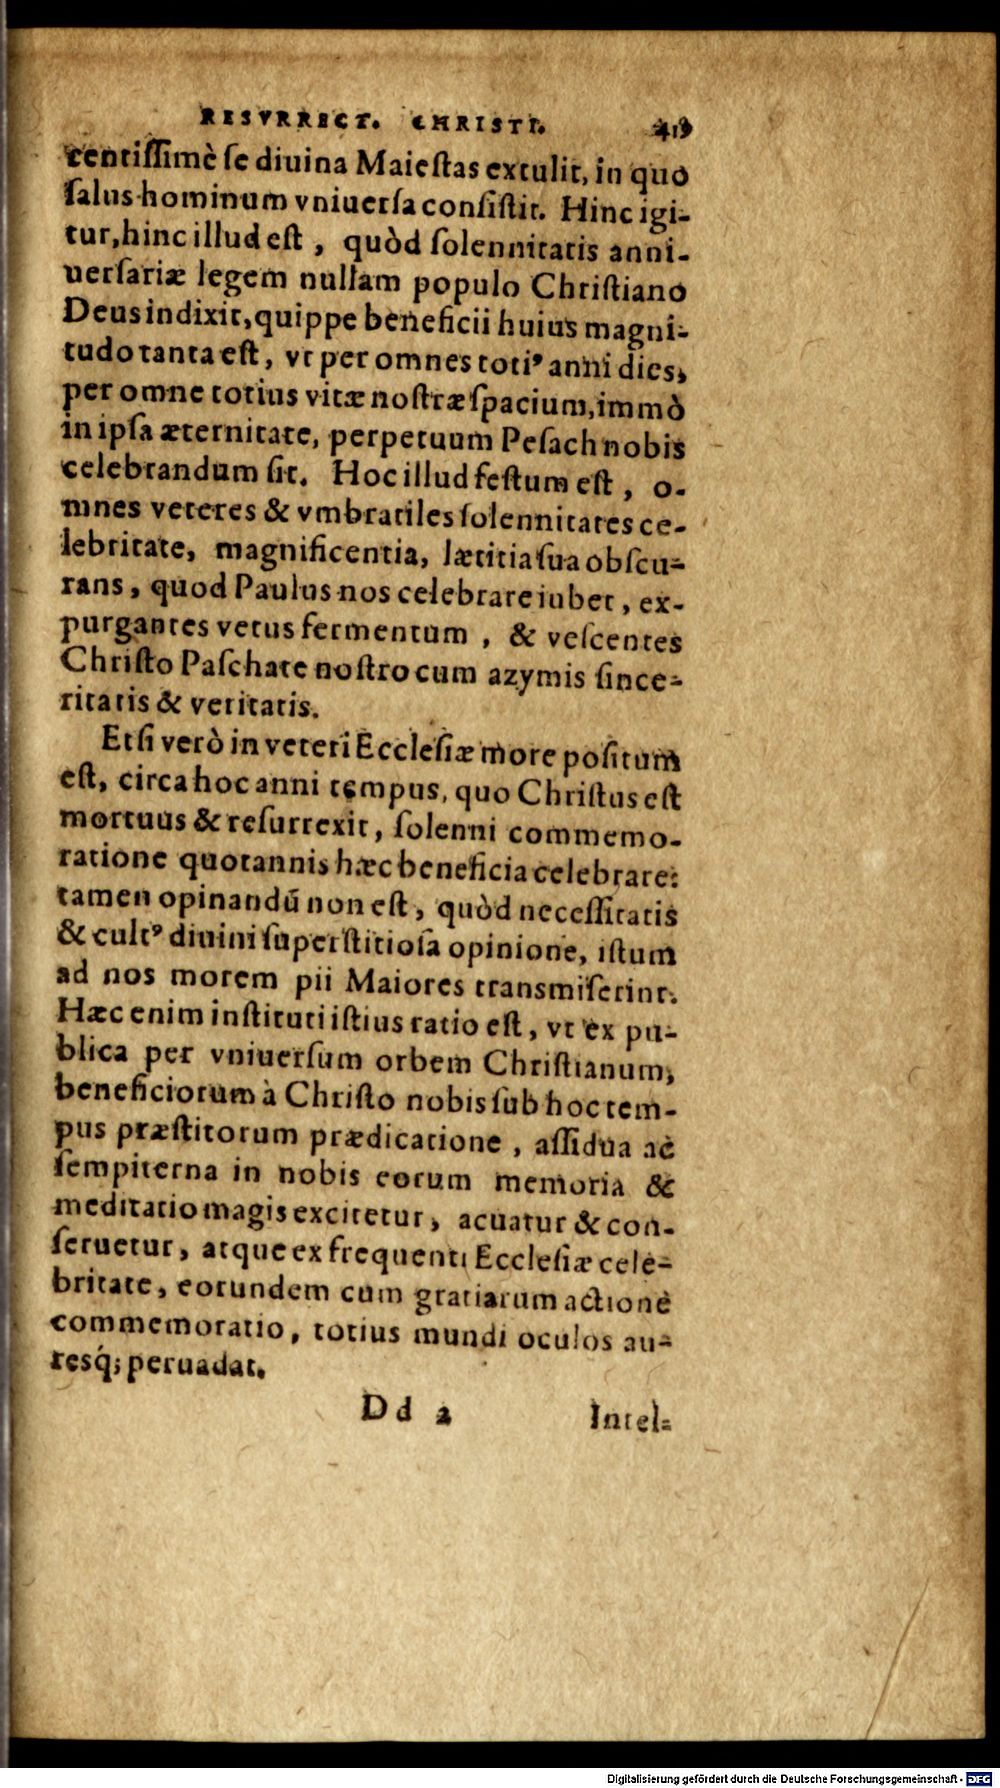 RESVRRECT. CHRISTI. 419
tentissimè se diuina Maiestas extulit, in quo
salus hominum vniuersa consistit. Hinc igi-
tur, hinc illud est, quòd solennitatis anni-
uersariæ legem nullam populo Christiano
Deus indixit, quippe beneficii huius magni-
tudo tanta est, vt per omnes toti⁹ anni dies,
per omne totius vitæ nostræ spacium, immò
in ipsa æternitate, perpetuum Pesach nobis
celebrandum sit. Hoc illud festum est, o-
mnes veteres & vmbratiles solennitates ce-
lebritate, magnificentia, lætitia sua obscu-
rans, quod Paulus nos celebrare iubet, ex-
purgantes vetus fermentum, & vescentes
Christo Paschate nostro cum azymis since-
ritatis & veritatis.
Etsi verò in veteri Ecclesiæ more positum
est, circa hoc anni tempus, quo Christus est
mortuus & resurrexit, solenni commemo-
ratione quotannis hæc beneficia celebrare:
tamen opinandū non est, quòd necessitatis
& cult⁹ diuini superstitiosa opinione, istum
ad nos morem pii Maiores transmiserint.
Hæc enim instituti istius ratio est, vt ex pu-
blica per vniuersum orbem Christianum,
beneficiorum à Christo nobis sub hoc tem-
pus præstitorum prædicatione, assidua ac
sempiterna in nobis eorum memoria &
meditatio magis excitetur, acuatur & con-
seruetur, atque ex frequenti Ecclesiæ cele-
britate, eorundem cum gratiarum actione
commemoratio, totius mundi oculos au-
resq́; peruadat.
Dd 2 Intel-
Digitalisierung gefördert durch die Deutsche Forschungsgemeinschaft - DFG